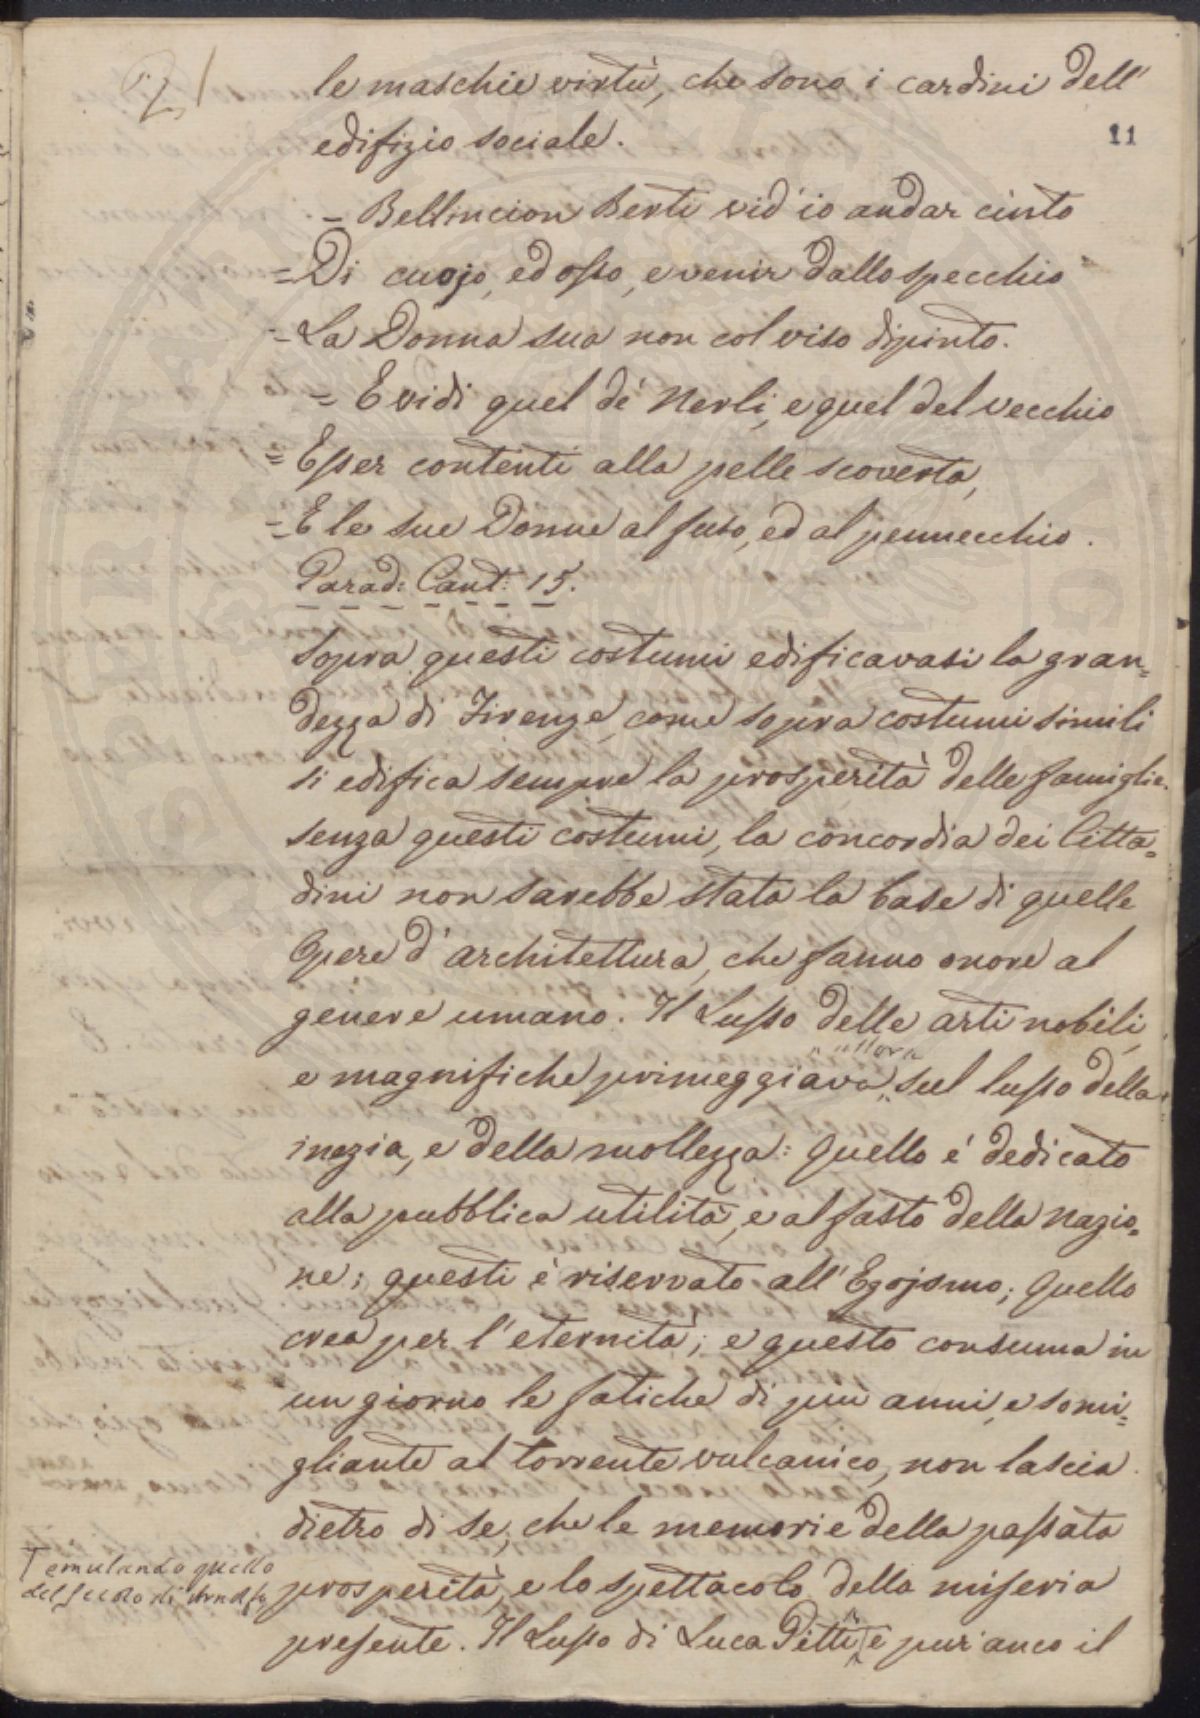 le maschie virtù, che sono i cardini dell'
11
edifizio sociale.
= Bellincion Berti vid'io andar cinto
= Di cuojo, ed osso, e venir dallo specchio
= La Donna sua non col viso dipinto.
= E vidi quel de' Nerli, e quel del vecchio
= Esser contenti alla pelle scoverta,
= E le sue Donne al fuso, ed al pennecchio.
Parad: Cant: 15.
Sopra questi costumi edificavasi la gran=
dezza di Firenze, come sopra costumi simili
si edifica sempre la prosperità delle famiglie.
senza questi costumi, la concordia dei Citta=
dini non sarebbe stata la base di quelle
Opere d'architettura, che fanno onore al
genere umano. Il Lusso delle arti nobili,
allora
e magnifiche primeggiava sul lusso della
inezia, e della mollezza: Quello é dedicato
alla pubblica utilità, e al fasto della nazio=
ne; questi è riservato all'Egojsmo; Quello
crea per l'eternità; e questo consuma in
un giorno le fatiche di più anni, e somi=
gliante al torrente vulcanico, non lascia
dietro di se, che le memorie della passata
prosperità, e lo spettacolo della miseria
presente. Il Lusso di Luca Pitti è pur anco il
emulando quello
del secolo di